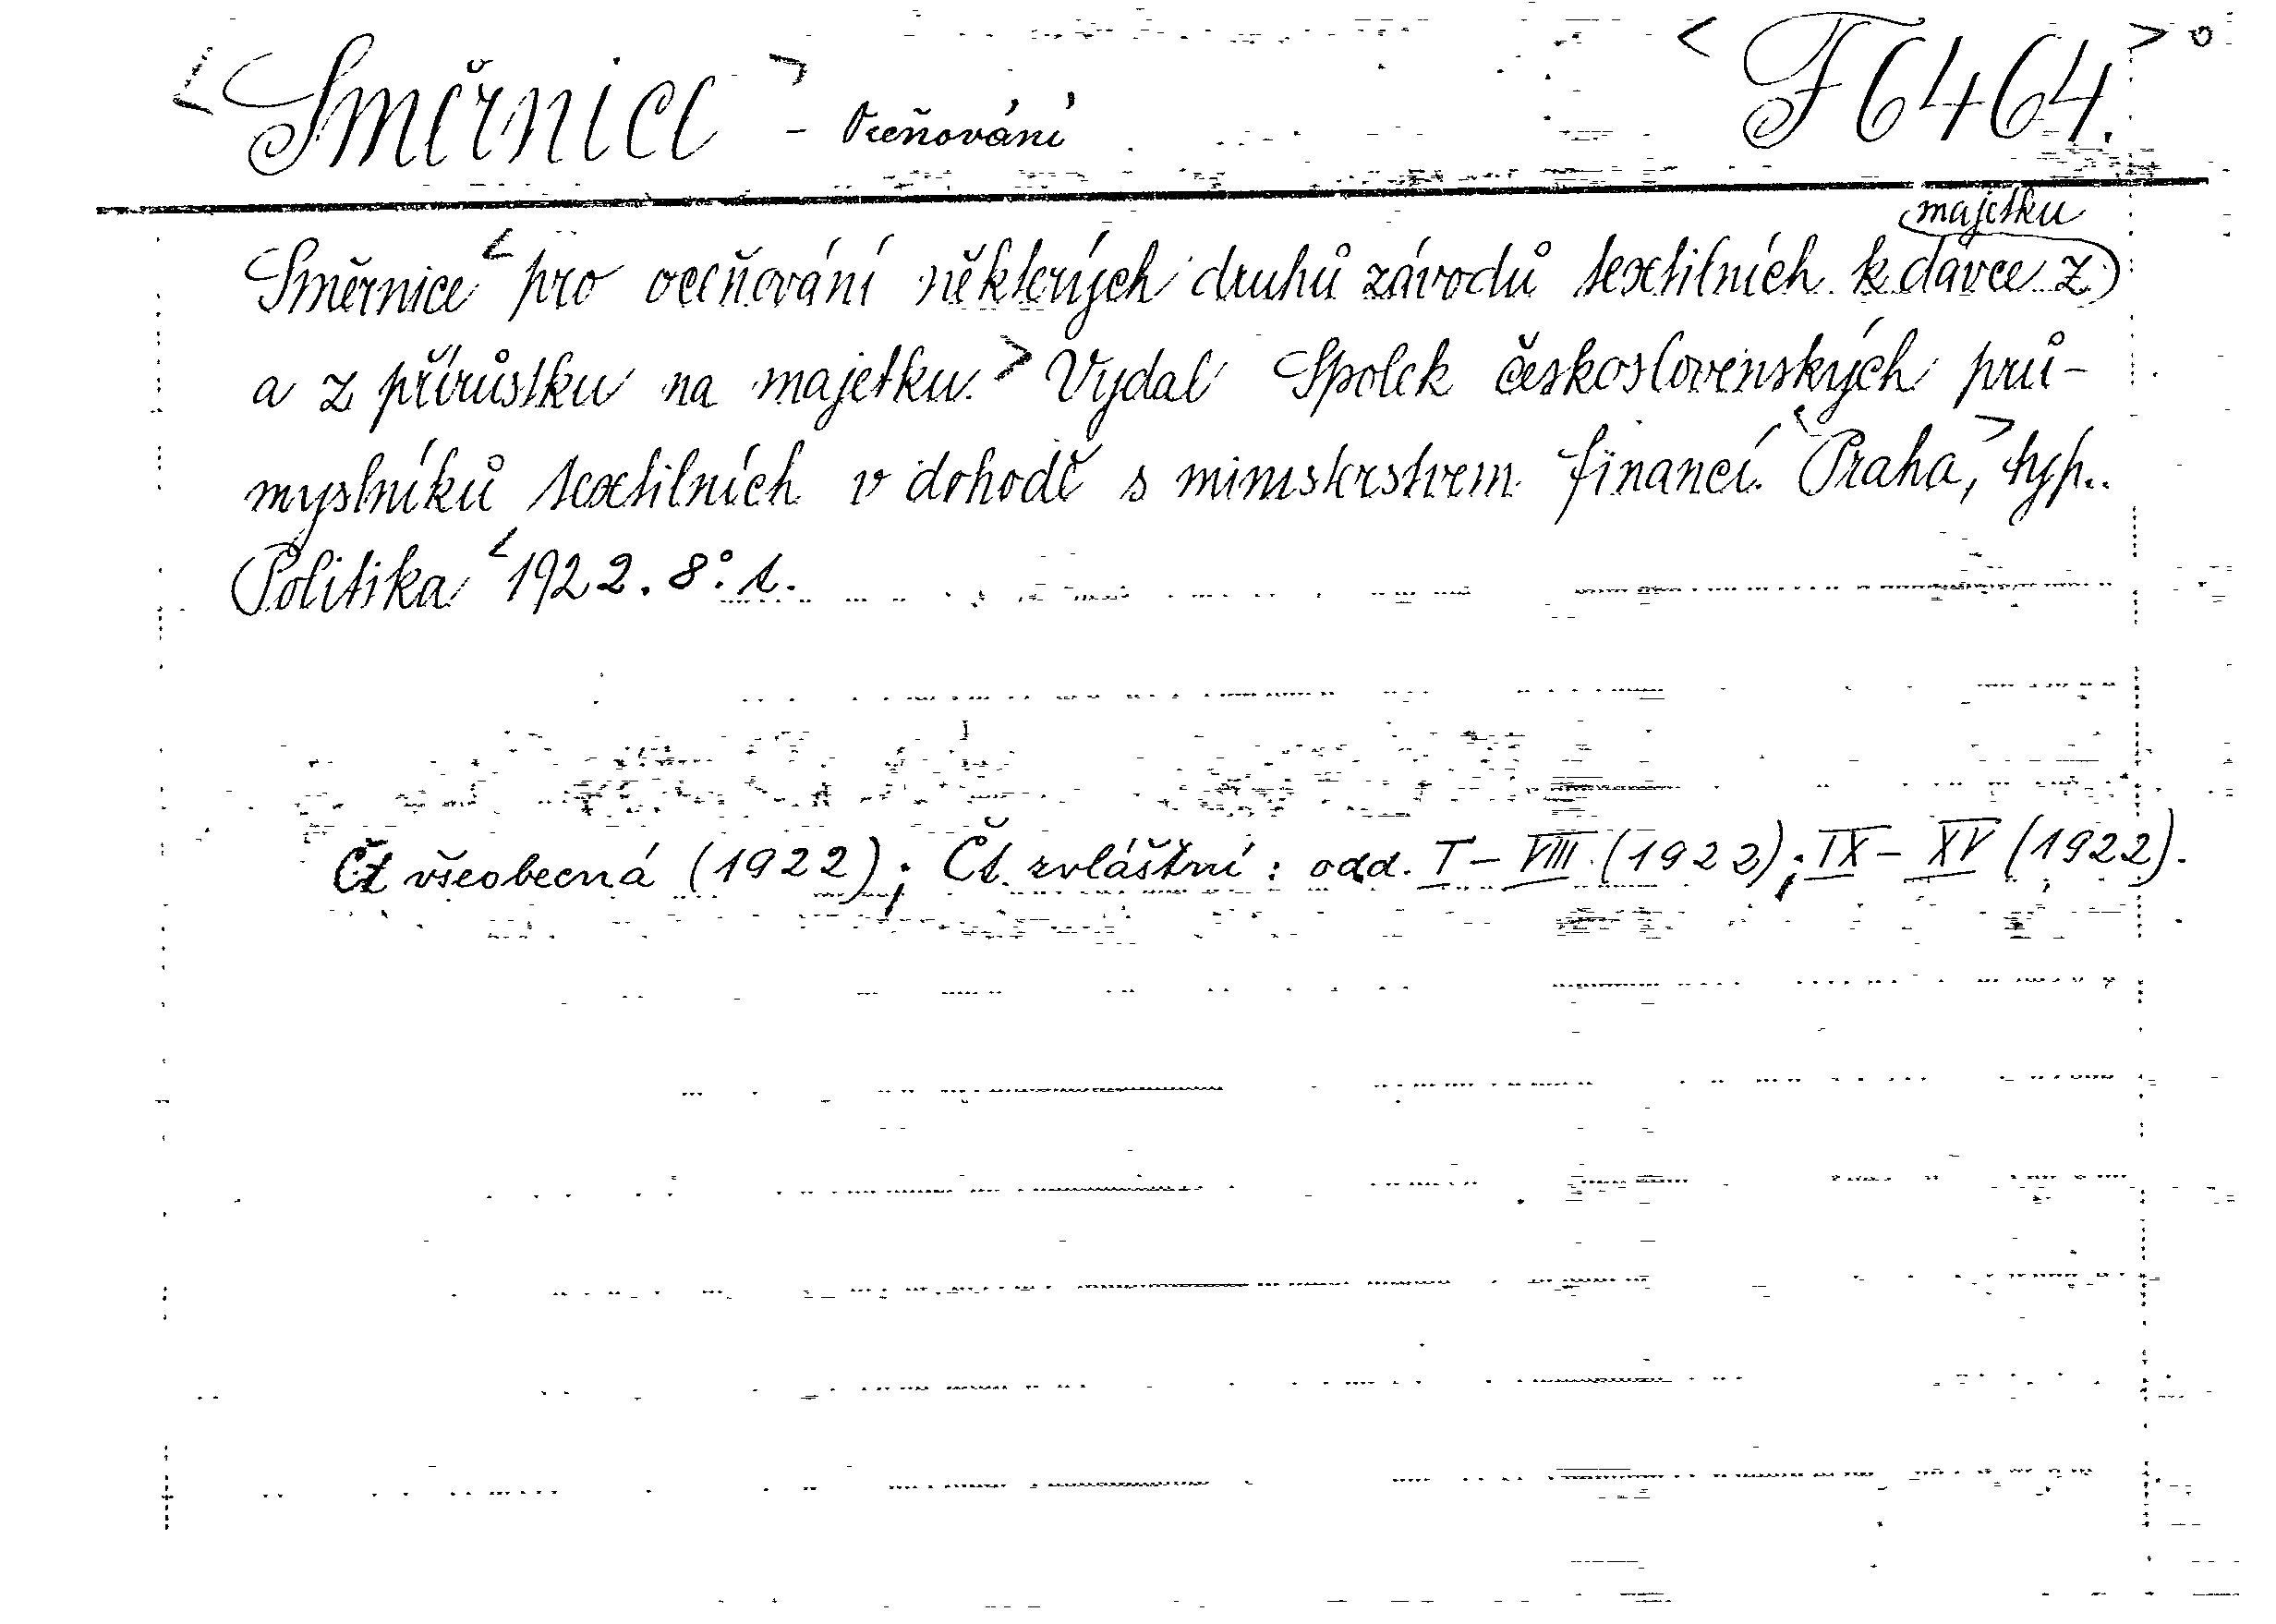 < Směrnice > - Oceňování < F 6464. > o
majetku
Směrnice < pro oceňování některých druhů závodů textilních k dávce z
a z přírůstku na majetku. > Vydal Spolek československých prů-
myslníků textilních v dohodě s ministerstvem financí. < Praha, > typ.
Politika < 1922. 8°. 1.
Čt všeobecná (1922); Čt. zvláštní: odd. I - VIII. (1922); IX - XV (1922).